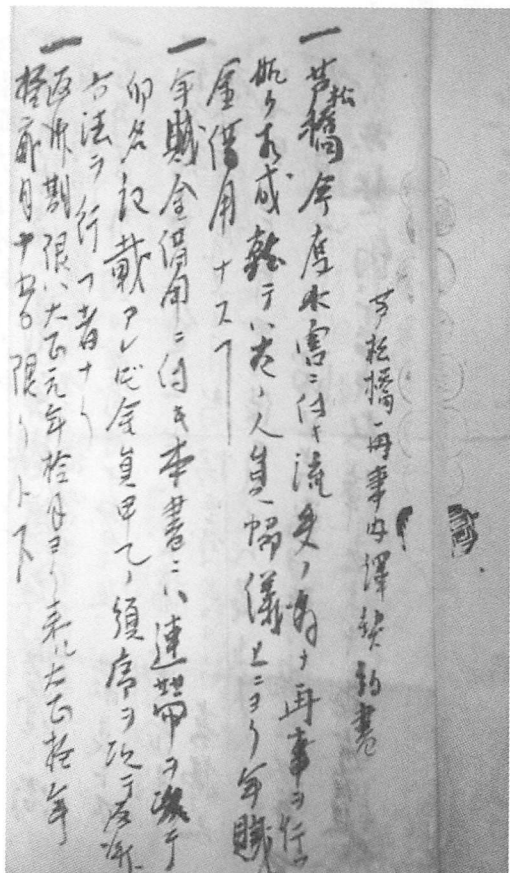 芳松橋再事内譯契約書
一芳松橋今度水害ニ付キ流失ノ為ナ再事ヲ行フ
相成就テハ左ノ人員協議上ニヨリ年賦
金借用ナスヿ
一年賦金借用ニ付キ本書ニハ連帯ヲ以テ
卯名記載アレ共金員甲乙ノ須序ヲ次テ返済
方法ヲ行フ者ナリ
一返済期限ハ大正元年拾月ヨリ来ル大正拾年
拾貳月十五日限リトス